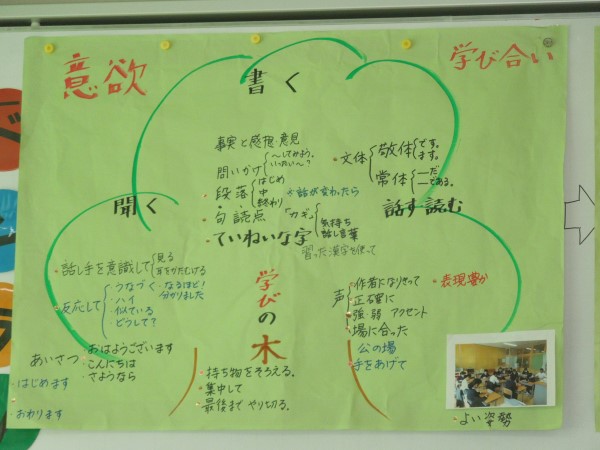 意欲
学び合い
書く
事実と感想・意見
問いかけ
～してみよう。
いったい～？
・段落
はじめ
中
終わり
※話が変わったら
・句読点
「カギ」
気持ち
話し言葉
・ていねいな字
習った漢字を使って
・文体
敬体
です。
ます。
常体
―だ
―である。
聞く
・話し手を意識して
見る
耳をかたむける
・反応して
・うなづく
・なるほど!
分かりました
・ハイ
・似ている
・どうして?
あいさつ
・おはようございます
・こんにちは
・さようなら
・はじめます
・おわります
話す 読む
声
・作者になりきって
・表現豊か
・正確に
・強・弱 アクセント
・場に合った
公の場
手をあげて
学びの木
・持ち物をそろえる。
・集中して
・最後まで やり切る。
・よい姿勢